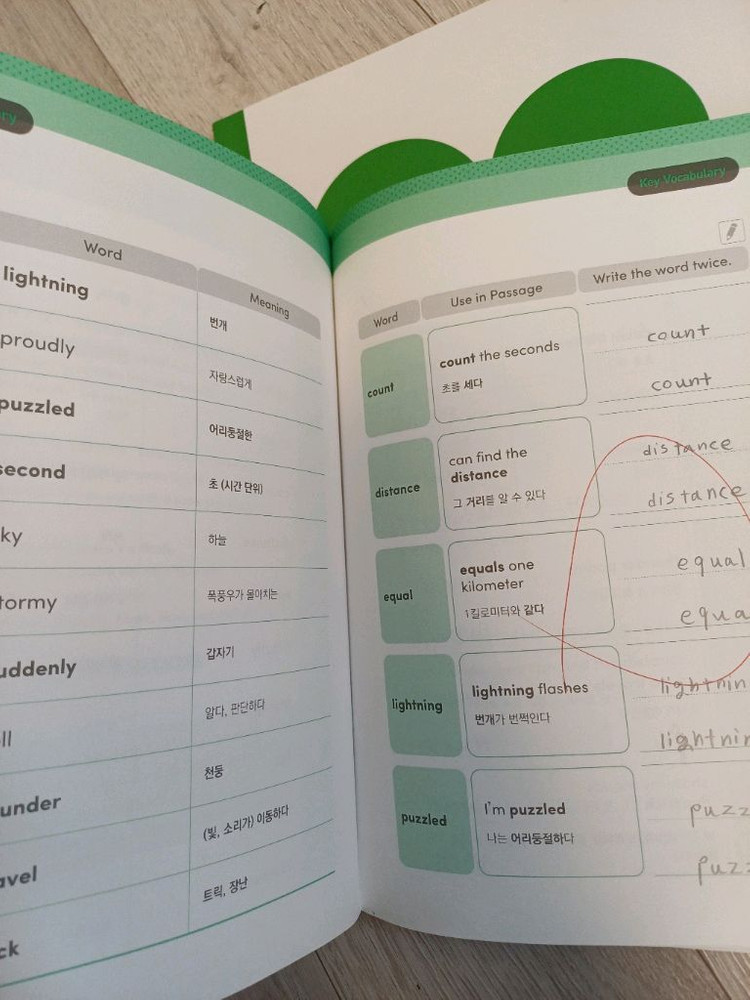 Word
Meaning
lightning
번개
proudly
자랑스럽게
puzzled
어리둥절한
second
초 (시간 단위)
하늘
폭풍우가 몰아치는
갑자기
알다, 판단하다
천둥
(빛, 소리가) 이동하다
트릭, 장난
Key Vocabulary
Word
Use in Passage
Write the word twice.
count
count the seconds
초를 세다
count
count
distance
can find the
distance
그 거리를 알 수 있다
distance
distance
equal
equals one
kilometer
1킬로미터와 같다
equal
equa
lightning
lightning flashes
번개가 번쩍인다
lightnin
lightnin
puzzled
I'm puzzled
나는 어리둥절하다
puzz
puzz